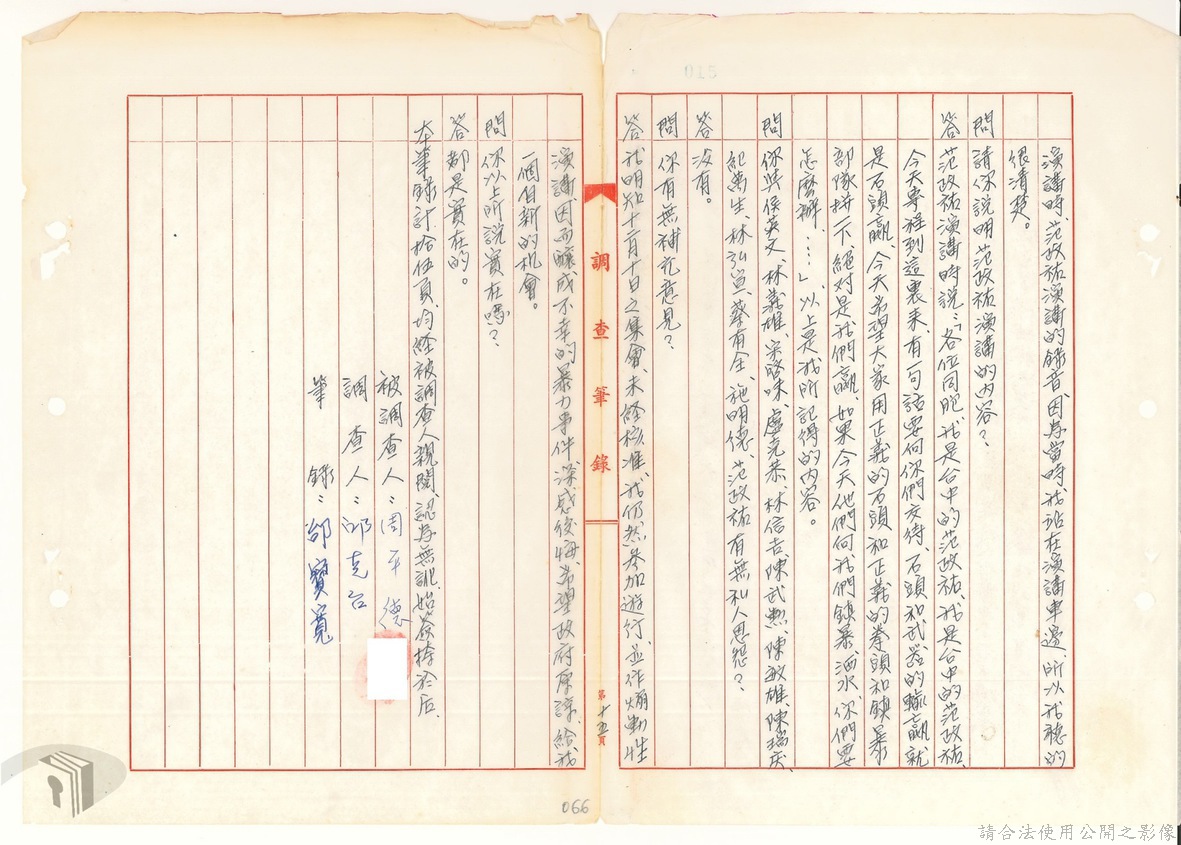 015
演講時、范政祐演講的錄音因為當時我站在演講車邊、所以我聽的
很清楚。
問 請你說明范政祐演講的內容？
答 范政祐演講時說：「各位同胞、我是台中的范政祐、我是台中的范政祐、
今天專程到這裏來、有一句話要向你們交待、石頭和武器的輸贏就
是石頭贏、今天希望大家用正義的石頭和正義的拳頭和鎮暴
部隊拼一下、絕对是我們贏、如果今天他們向我們鎮暴、洒水、你們要
怎麼辦……」以上是我所記得的内容。
問 你與張英文、林義雄、宋啓味、盧克恭、林信吉、陳武勲、陳敏雄、陳瑞庆、
紀萬生、林弘宣、蔡有全、施明德、范政祐有無私人恩怨？
答 沒有。
問 你有無補充意見？
答 我明知十二月十日之集會、未経核准、我仍然參加遊行、並作煽動性
調查筆錄
第十五頁
演講因而釀成不幸的暴力事件、深感後悔、希望政府原諒、給我
一個自新的机會。
問 你以上所說實在嗎？
答 都是實在的。
本筆錄計拾伍頁、均经被調查人親閱、認為無訛、始簽捺於后、
被調查人：周平德
調查人：邱克台
筆錄：邰寶寬
066
請合法使用公開之影像